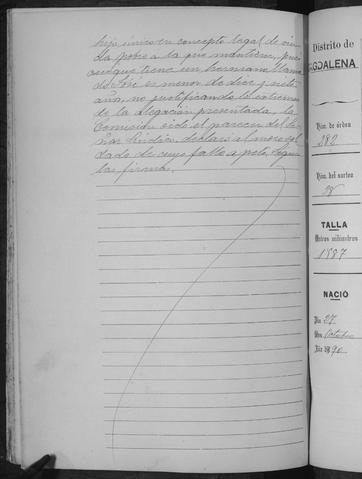 hijo único en concepto legal de viu-
da pobre a la que mantiene, pues
aunque tiene un hermano llama-
do José es menor de diez y siete
años, no justificando los extremos
de la alegación presentada, la
Comisión oido el parecer del Se-
ñor Síndico, declaró al mozo sol-
dado de cuyo fallo apeló. Siguen
las firmas.
Distrito de
GDALENA
Núm. de órden
282
Núm. del sorteo
TALLA
Metros milímetros
1587
NACIÓ
Día 27
Mes Octubre
Año 1890